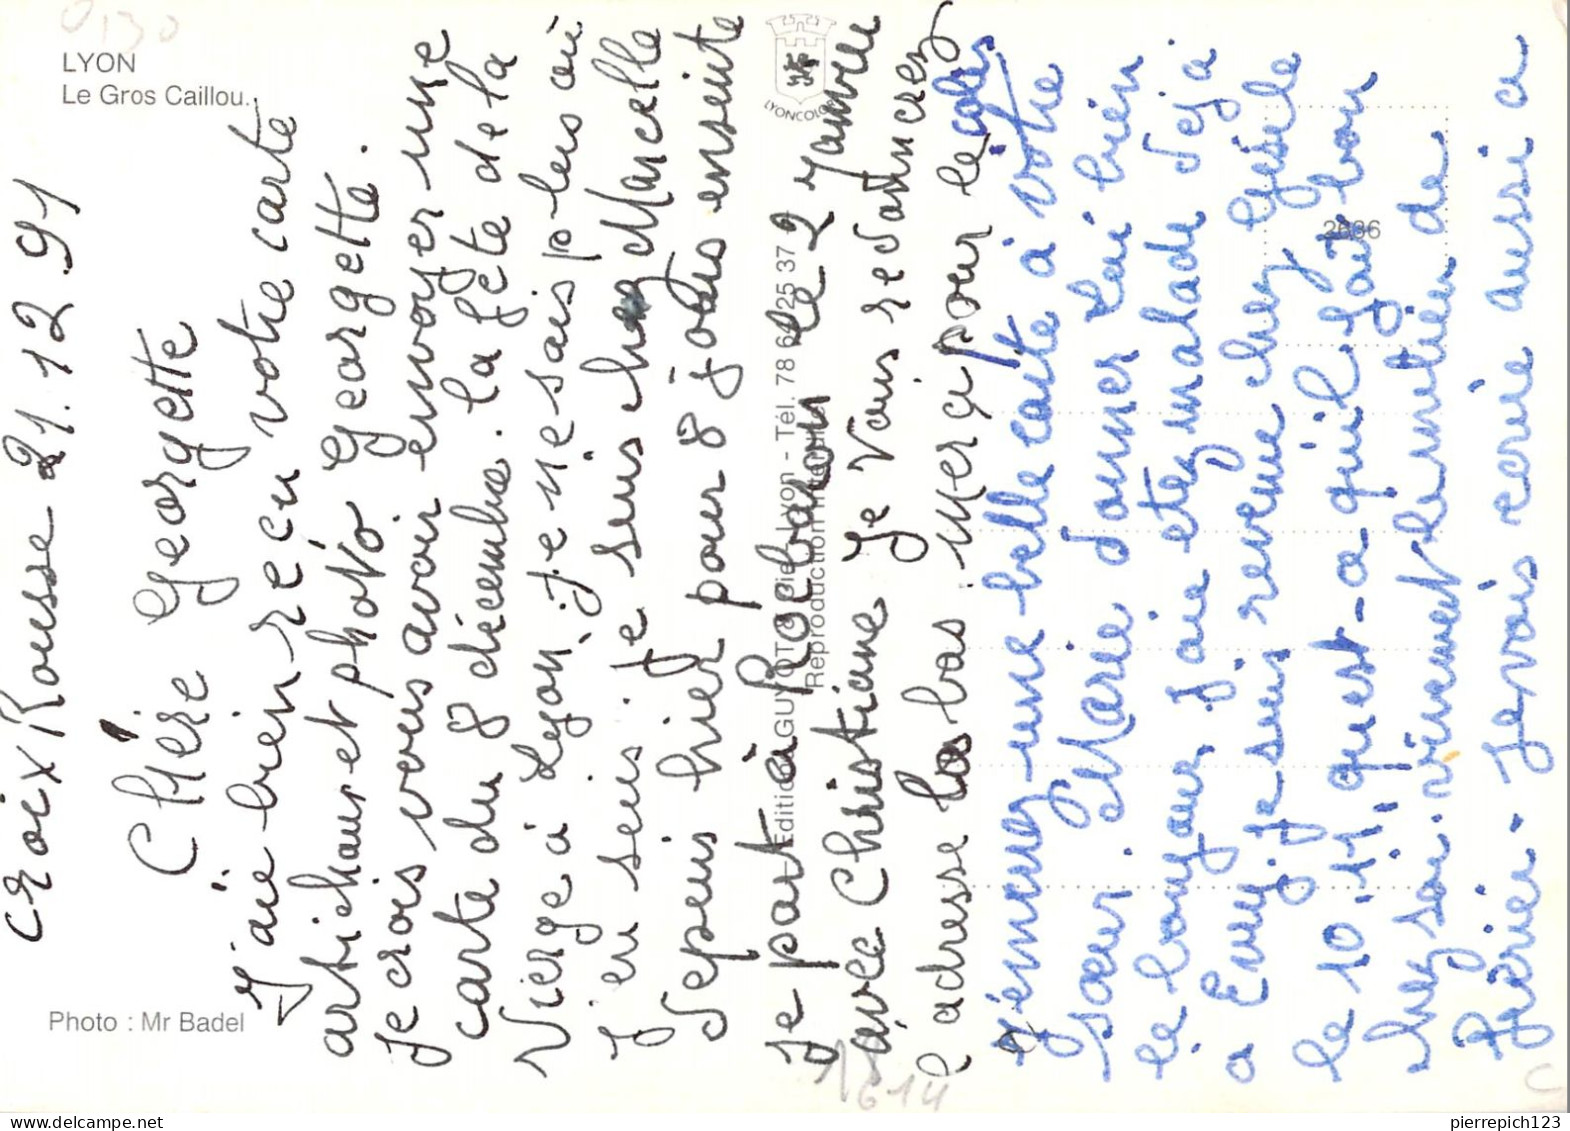 0130
LYON
Le Gros Caillou.
Photo : Mr Badel
LYONCOLOR
Editions GUYOT & Cie Lyon - Tél. 78 64 25 37
Reproduction interdite
2686
croix Rousse 21.12.91
Chère georgette
J'aie bien récu votre carte
artichaut et photo georgette.
Je crois vous avoir envoyer une
carte du 8 décembre. la fête de la
Vierge à Lyon. Je ne sais plus où
j'en suis. Je suis chez Marcelle
depuis hier pour 8 jours ensuite
Je part à Rochan le 2 Janvier
avec Christiane Je Vous redonnerez
l'adresse la bas. merçi pour le colis
J'emenez une belle carte à votre
sœur. Marie donner lui bien
le bonjour. J'aie etez malade deja
a Evry. je suis revenue chez gisele
le 10.11. quest-a quil fait bon
chez soi. vivement le millieu de
février. Je vais ecrire aussi a
18614
C
pierrepich123